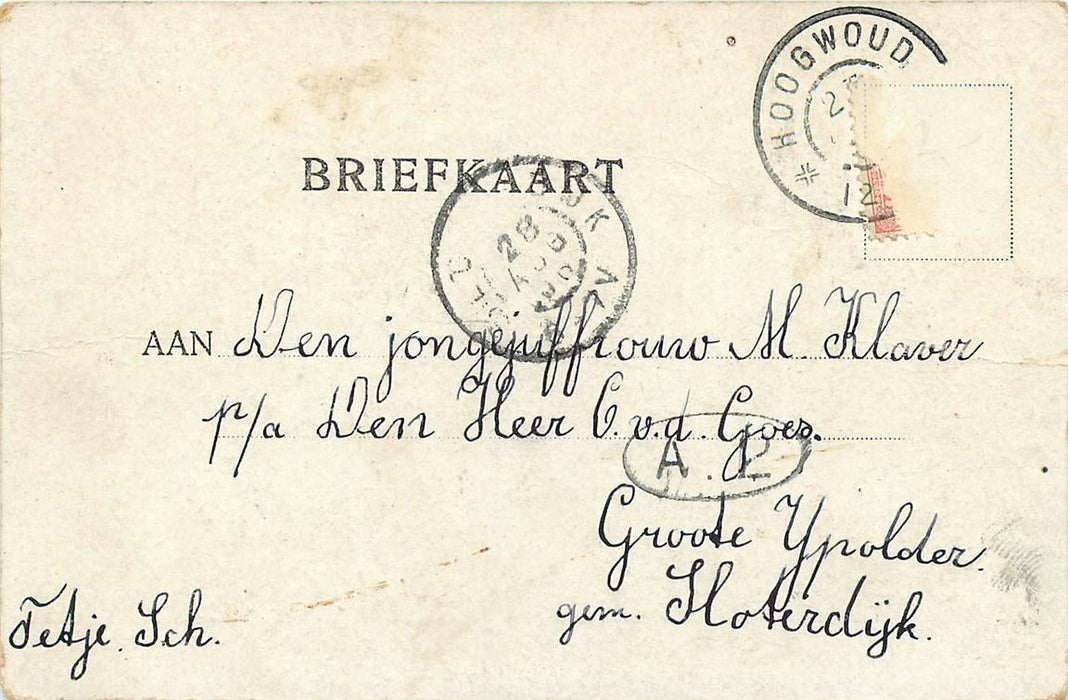 HOOGWOUD
12
BRIEFKAART
28 AUG
AAN Den jongejuffrouw M. Klaver
p/a Den Heer C. v.d. Goes.
A. 12
Groote Ypolder.
gem. Sloterdijk.
Tetje. Sch.